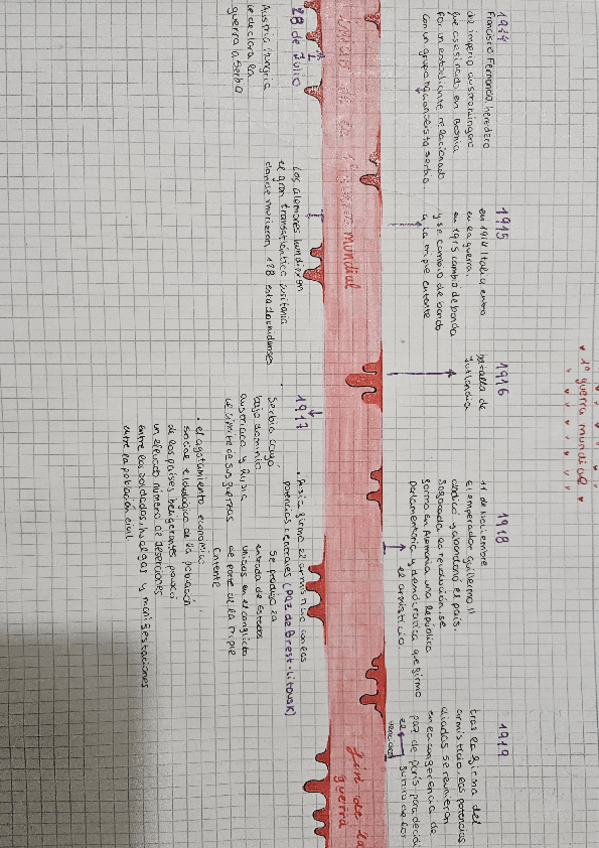 1º guerra mundial
1914
Francisco Fernando, heredero
del imperio austrohúngaro
fue asesinado en Bosnia
por un estudiante relacionado
con un grupo nacionalista serbio
1915
en 1914 Italia entro
en la guerra.
en 1915 cambio de banda
y se cambio de bando
a la triple entente
1916
batalla de
Jutlandia
1918
11 de Noviembre
El emperador Guillermo II
abdicó y abandonó el país.
Sofocada la revolución, se
formo en Alemania una República
parlamentaria y democratica que firmo
el armisticio
1919
tras la firma del
armisticio, las potencias
aliadas se reunieron
en la conferencia de
paz de París para decidir
el futuro de los
vencidos
de la 1º guerra mundial
fin de la
guerra
28 de Julio
Austria-Hungria
le declara la
guerra a Serbia
Los alemanes hundieron
el gran transatlántico Lusitania
donde murieron 128 estadounidenses
1917
Serbia cayó
bajo dominio
austriaco y Rusia
al límite de sus fuerzas
. Rusia firmo el armisticio con las
potencias centrales (Paz de Brest-Litovsk)
Se produjo la
entrada de Estados
Unidos en el conflicto
de parte de la Triple
Entente
. el agotamiento económico,
social e ideológico de la población
de los países beligerantes provocó
un elevado número de deserciones
entre los soldados, huelgas y manifestaciones
entre la población civil